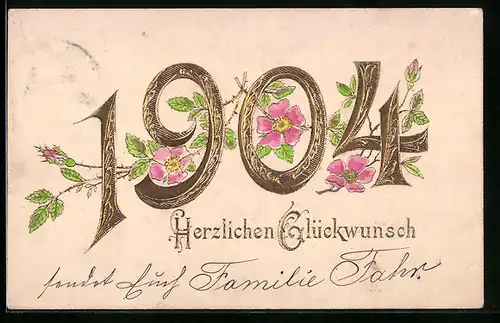 1904
Herzlichen Glückwunsch
sendet Euch Familie Fahr.